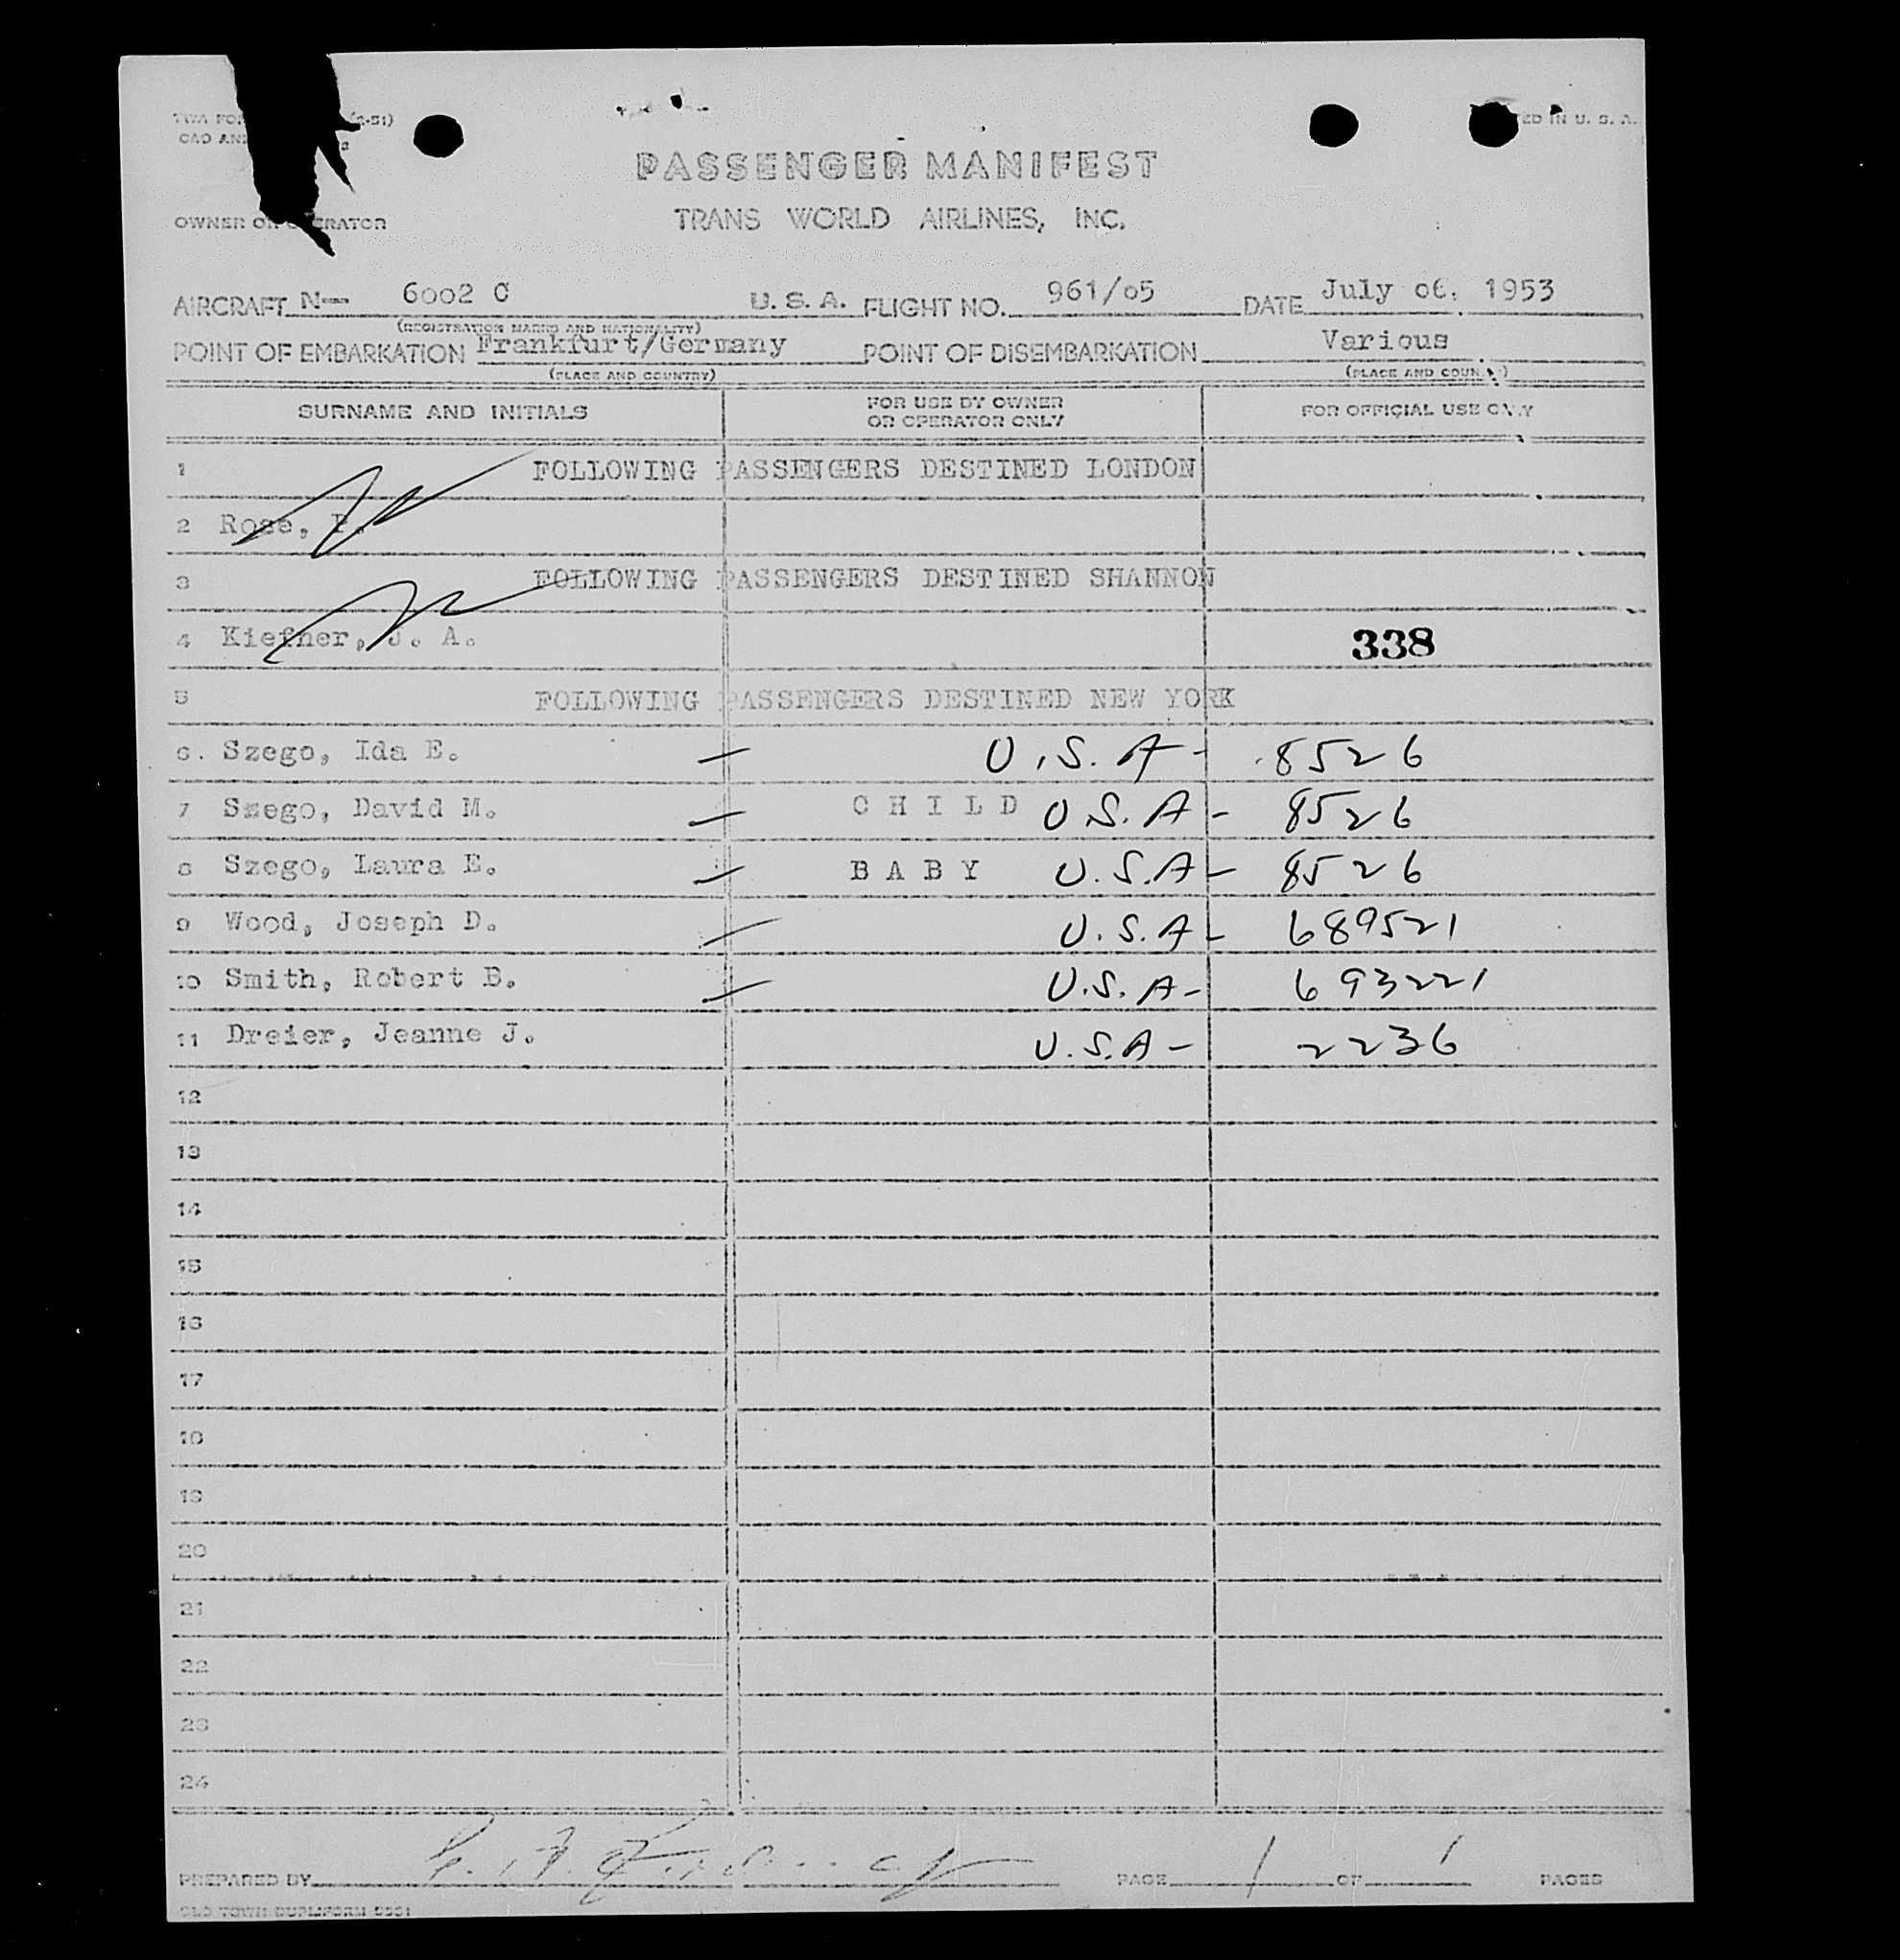 TWA FO (2-51)
CAO AN
PASSENGER MANIFEST
OWNER OR OPERATOR TRANS WORLD AIRLINES, INC.
AIRCRAFT N-- 6002 C U. S. A. FLIGHT NO. 961/05 DATE July 06. 1953
(REGISTRATION MARKS AND NATIONALITY)
POINT OF EMBARKATION Frankfurt/Germany POINT OF DISEMBARKATION Various
(PLACE AND COUNTRY) (PLACE AND COUN )
SURNAME AND INITIALS FOR USE BY OWNER OR OPERATOR ONLY FOR OFFICIAL USE ONLY
1 FOLLOWING PASSENGERS DESTINED LONDON
2 Rose, P.
3 FOLLOWING PASSENGERS DESTINED SHANNON
4 Kiefner, J. A. 338
5 FOLLOWING PASSENGERS DESTINED NEW YORK
6. Szego, Ida E. — U.S.A - 8526
7 Szego, David M. — C H I L D U.S.A - 8526
8 Szego, Laura E. — B A B Y U.S.A - 8526
9 Wood, Joseph D. — U.S.A - 689521
10 Smith, Robert B. — U.S.A - 693221
11 Dreier, Jeanne J. U.S.A - 2236
12
13
14
15
16
17
18
19
20
21
22
23
24
PREPARED BY PAGE 1 OF 1 PAGES
OLD TOWN DUPLIFORM